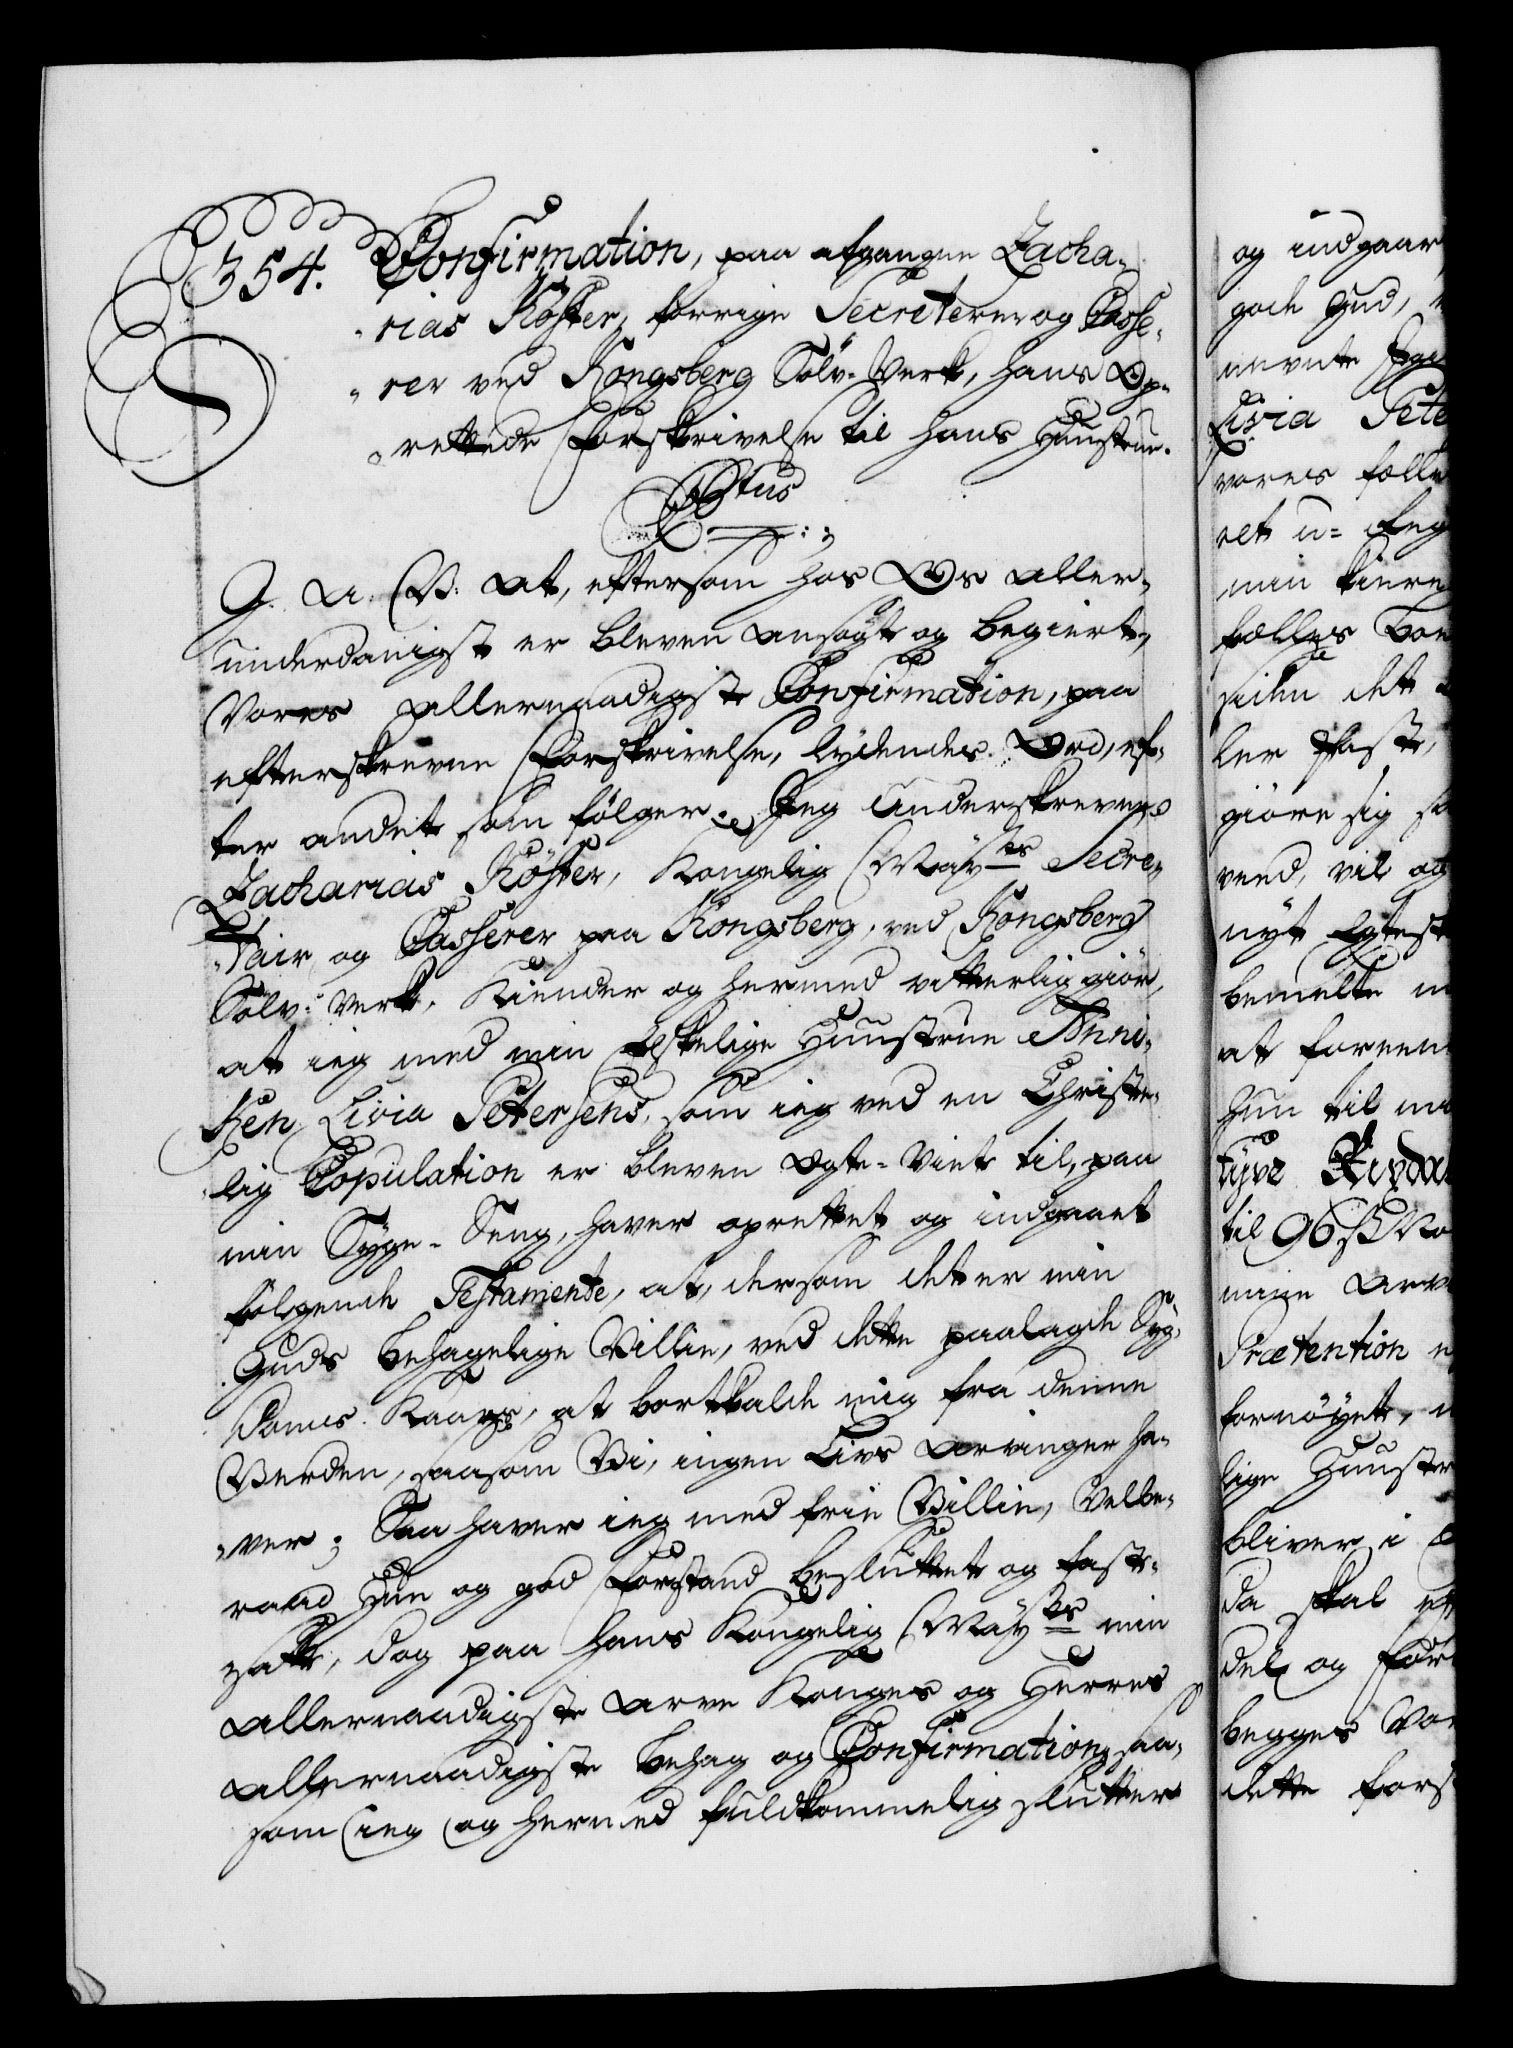 354. Confirmation, paa afgangne Zacha-
rias Köster, forrige Secreterer og Casse-
rer ved Kongsberg Sölv-Verk, hans Op-
rettede Forskrivelse til hans Hustrue.
G. A. V. At, eftersom hos Os aller-
underdanigst er bleven ansögt og begiert,
Vores allernaadigste Confirmation, paa
efterskrevne Forskrivelse, lydendes Ord, ef-
ter andet som fölger. Jeg Underskrevne
Zacharias Köster, Kongelig Mayts Secre-
tair og Casserer paa Kongsberg, ved Kongsberg
Sölv-Verk, Kiender og hermed vitterlig giör,
at ieg med min Elskelige Huustrue Anni-
ken Livia Petersens, som ieg ved en Christe-
lig Copulation er bleven Egte-Viet til, paa
min Syge-Seng, haver oprettet og indgaaet
fölgende Testamente, at, dersom det er min
Guds behagelige Villie, ved dette paalagde Syg-
doms Kaars, at bortkalde mig fra denne
Verden, saasom Vi, ingen Livs Arvinger ha-
ver; Saa haver ieg med frie Villie, Velbe-
raad Hue og god Forstand besluttet og fast-
satte, dog paa Hans Kongelig Mayts min
allernaadigste Arve Konges og Herres
allernaadigste behag og Confirmation, saa-
som ieg og hermed fuldkommelig slutter
og indgaar
gode Gud,
nevnte
Livia Pete
vores fælle
ret u-
min kiere
fælles Boe
siden det
ler Fast,
giöre sig
med, vil og
nyt Egtest
bemelte
at foreen
hun til
tyve Rixda
til 96 s
mine Arv
Prætention
fornöyet,
lige Huustr
bliver i
da skal
del og for
begges Vor
dette fors